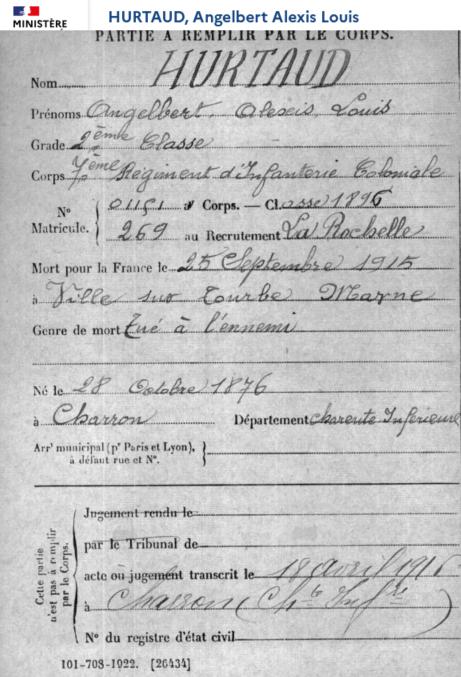 MINISTÈRE
HURTAUD, Angelbert Alexis Louis
PARTIE A REMPLIR PAR LE CORPS.
Nom HURTAUD
Prénoms Angelbert, Alexis, Louis
Grade 2ème Classe
Corps 7ème Régiment d'Infanterie Coloniale
N° Matricule. { 01151 au Corps. — Classe 1896
269 au Recrutement La Rochelle
Mort pour la France le 25 Septembre 1915
à Ville sur Tourbe Marne
Genre de mort Tué à l'ennemi
Né le 28 Octobre 1876
à Charron Département Charente Inférieure
Arrt municipal (pr Paris et Lyon), à défaut rue et N°. }
Cette partie n'est pas à remplir par le Corps.
Jugement rendu le
par le Tribunal de
acte ou jugement transcrit le 18 avril 1916
à Charron (Chte Infre)
N° du registre d'état civil
101-708-1922. [26434]